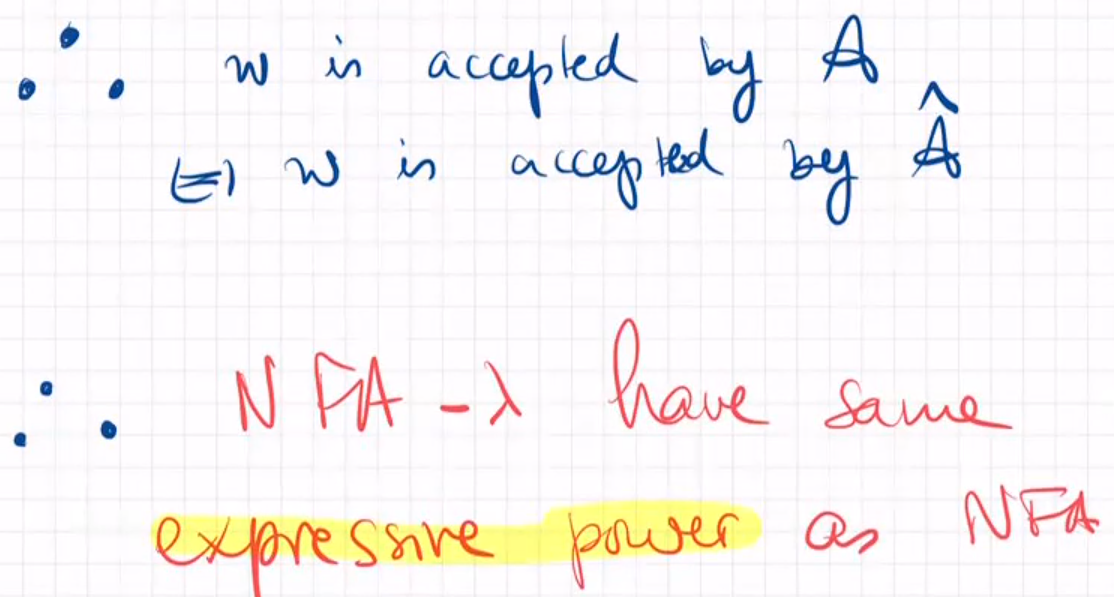 ∴ w is accepted by A
⇔ w is accepted by Â
∴ NFA-λ have same
expressive power as NFA